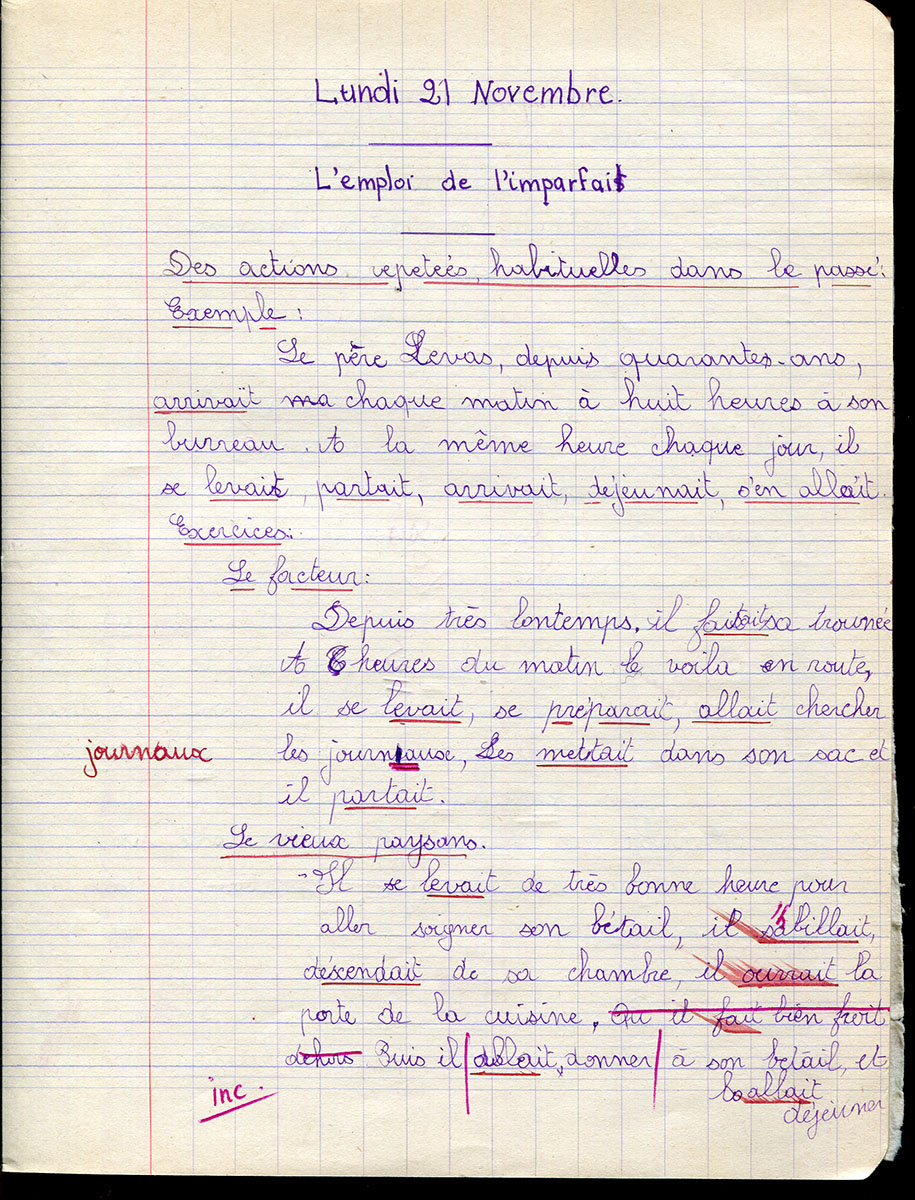 Lundi 21 Novembre.
L'emploi de l'imparfait
Des actions repeteés, habituelles dans le passé:
Exemple :
Le père Levas, depuis quarantes-ans,
arrivait ma chaque matin à huit heures à son
burreau. A la même heure chaque jour, il
se levait, partait, arrivait, déjeunait, s'en allait.
Exercices:
Le facteur:
Depuis très lontemps, il faisait sa trounée
A 6 heures du matin le voila en route,
il se levait, se préparait, allait chercher
journaux les journiaux, Les mettait dans son sac et
il partait.
Le vieux paysans.
-Il se levait de très bonne heure pour
aller soigner son bétail, il s'habillait,
déscendait de sa chambre, il ouvrait la
porte de la cuisine. Ou il fait bien froit
dehors Puis il allait, donner à son bétail, et
allait
déjeuner
inc.